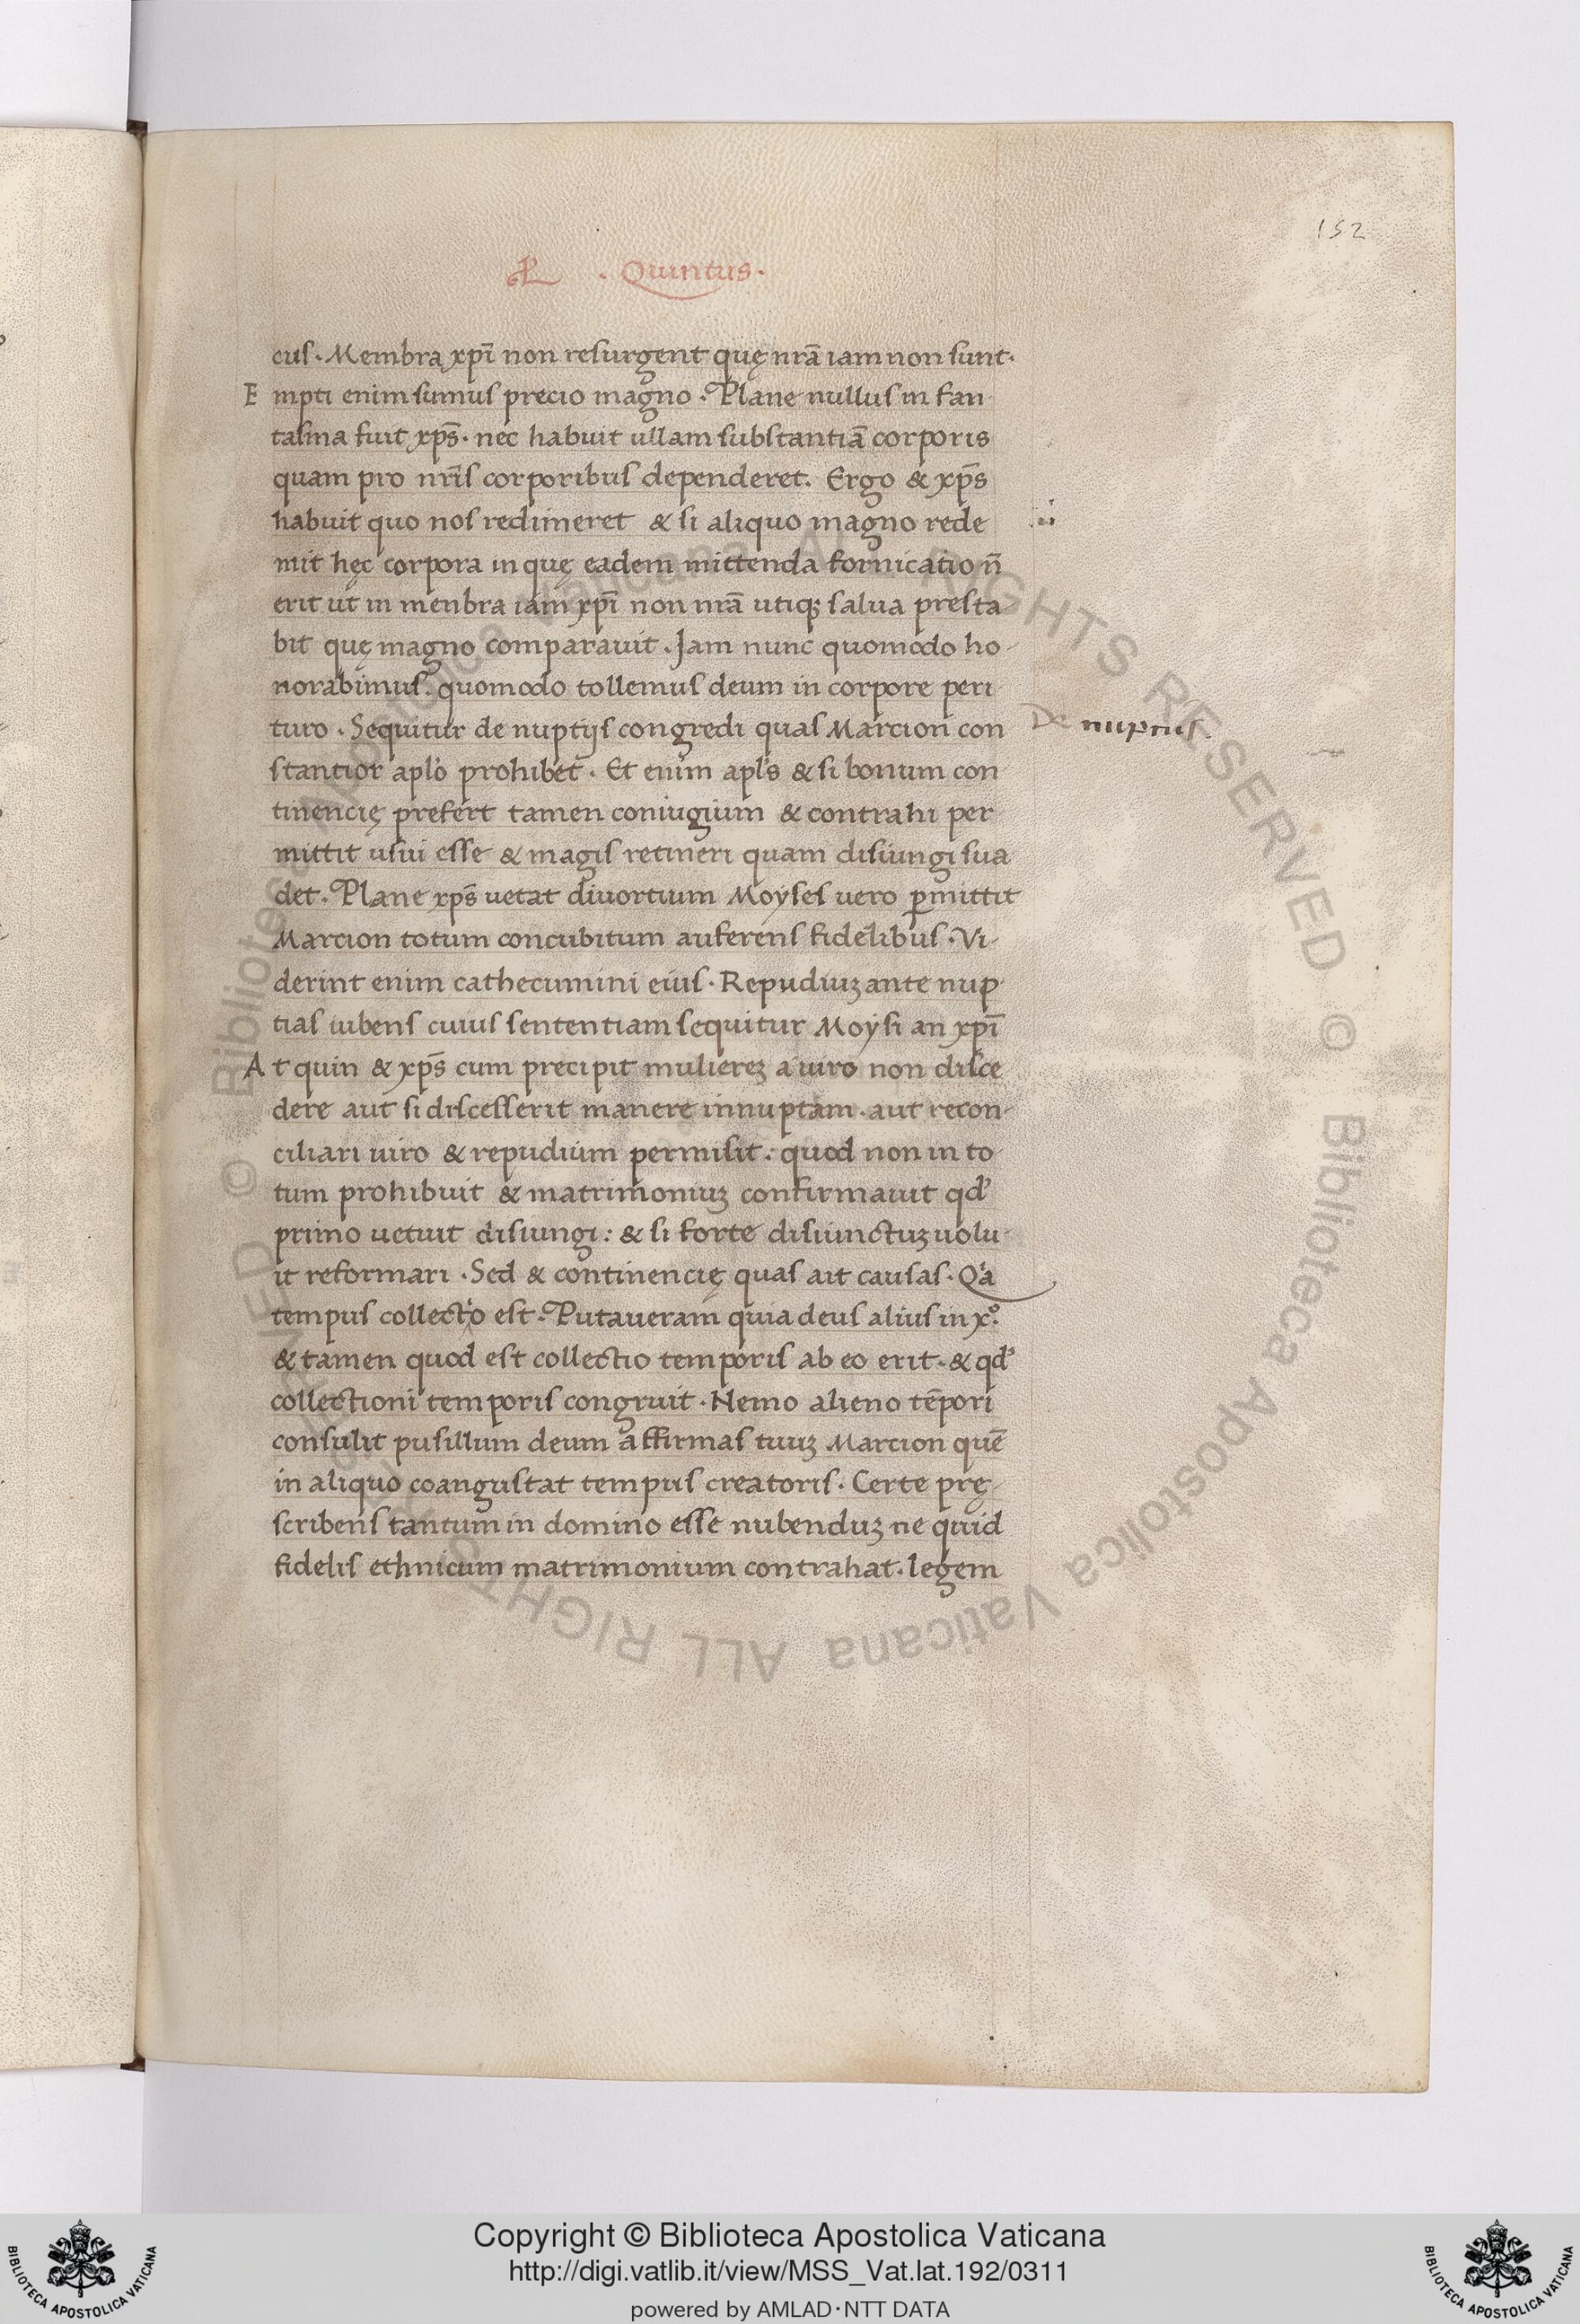 152
. Quintus.
cus. Membra xp̄i non resurgent quę nr̄a iam non sunt.
E mpti enim sumus precio magno. Plane nullus in fan
tasma fuit xp̄s. nec habuit ullam substantiā corporis
quam pro nr̄is corporibus dependeret. Ergo & xp̄s
habuit quo nos redimeret & si aliquo magno rede
mit hęc corpora in quę eadem mittenda fornicatio n̄
erit ut in menbra iam xp̄i non nr̄a utiqꝫ salua presta
bit quę magno comparauit. Jam nunc quomodo ho
norabimus. quomodo tollemus deum in corpore peri
turo. Sequitur de nuptijs congredi quas Marcion con
De nuptiis.
stantior aplo prohibet. Et enim apls & si bonum con
tinencię prefert tamen coniugium & contrahi per
mittit usui esse & magis retineri quam disiungi sua
det. Plane xp̄s uetat diuortium Moyses uero ꝑmittit
Marcion totum concubitum auferens fidelibus. Vi
derint enim cathecumini eius. Repudiuꝫ ante nup
tias iubens cuius sententiam sequitur Moysi an xp̄i
A t quin & xp̄s cum precipit mulierеꝫ a uiro non disce
dere aut si discesserit manere innuptam. aut recon
ciliari uiro & repudium permisit: quod non in to
tum prohibuit & matrimoniuꝫ confirmauit qd'
primo uetuit disiungi: & si forte disiunctuꝫ uolu
it reformari. Sed & continencię quas ait causas. Qa
tempus collecto est. Putaueram quia deus alius in xº.
& tamen quod est collectio temporis ab eo erit. & qd'
collectioni temporis congruit. Nemo alieno tēpori
consulit pusillum deum affirmas tuuꝫ Marcion quē
in aliquo coangustat tempus creatoris. Certe prę
scribens tantum in domino esse nubenduꝫ ne quid
fidelis ethnicum matrimonium contrahat. legem
Copyright © Biblioteca Apostolica Vaticana
http://digi.vatlib.it/view/MSS_Vat.lat.192/0311
powered by AMLAD·NTT DATA
BIBLIOTECA APOSTOLICA VATICANA
BIBLIOTECA APOSTOLICA VATICANA
© Biblioteca Apostolica Vaticana ALL RIGHTS RESERVED © Biblioteca Apostolica Vaticana ALL RIGHTS RESERVED